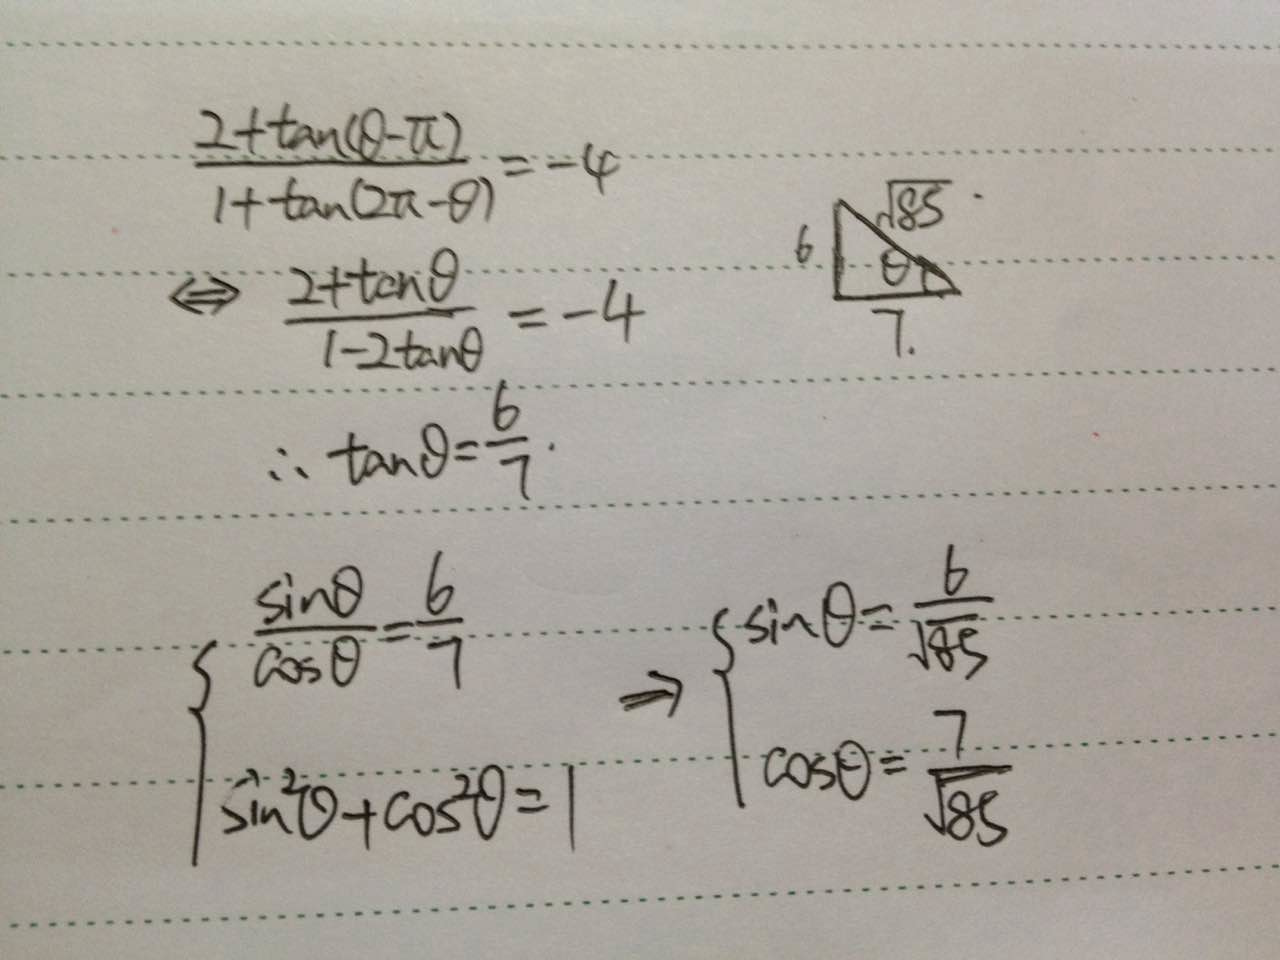 2+tan(θ-π)
1+tan(2π-θ) = -4
⇔ 2+tanθ
1-2tanθ = -4
√85
6
θ
7.
∴ tanθ = 6/7.
{ sinθ/cosθ = 6/7
sin²θ+cos²θ=1
⇒ { sinθ = 6/√85
cosθ = 7/√85